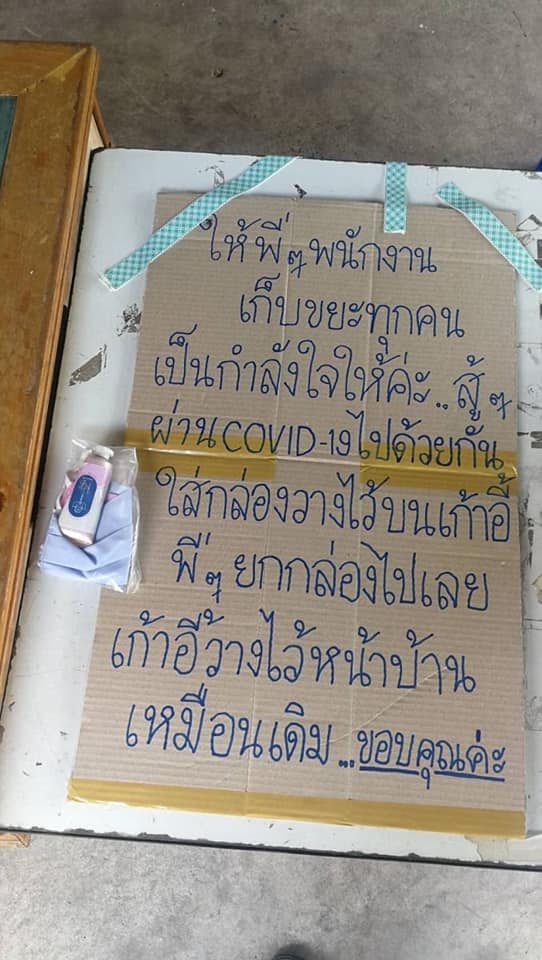 ให้พี่ๆพนักงาน
เก็บขยะทุกคน
เป็นกำลังใจให้ค่ะ..สู้ๆ
ผ่านCOVID-19ไปด้วยกัน
ใส่กล่องวางไว้บนเก้าอี้
พี่ๆยกกล่องไปเลย
เก้าอี้วางไว้หน้าบ้าน
เหมือนเดิม...ขอบคุณค่ะ